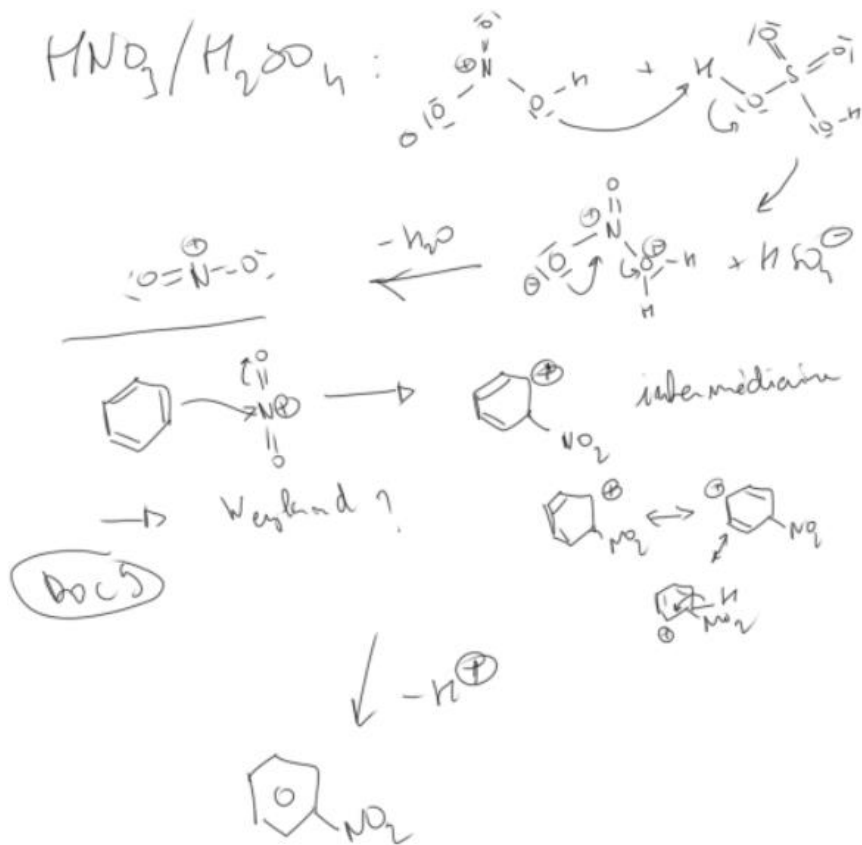 HNO3/H2SO4 :
+
- H2O
+ HSO4⊖
intermédiaire
NO2
→ Weyland ?
NO2 ↔ NO2
DOC 5
H
NO2
- H⊕
NO2